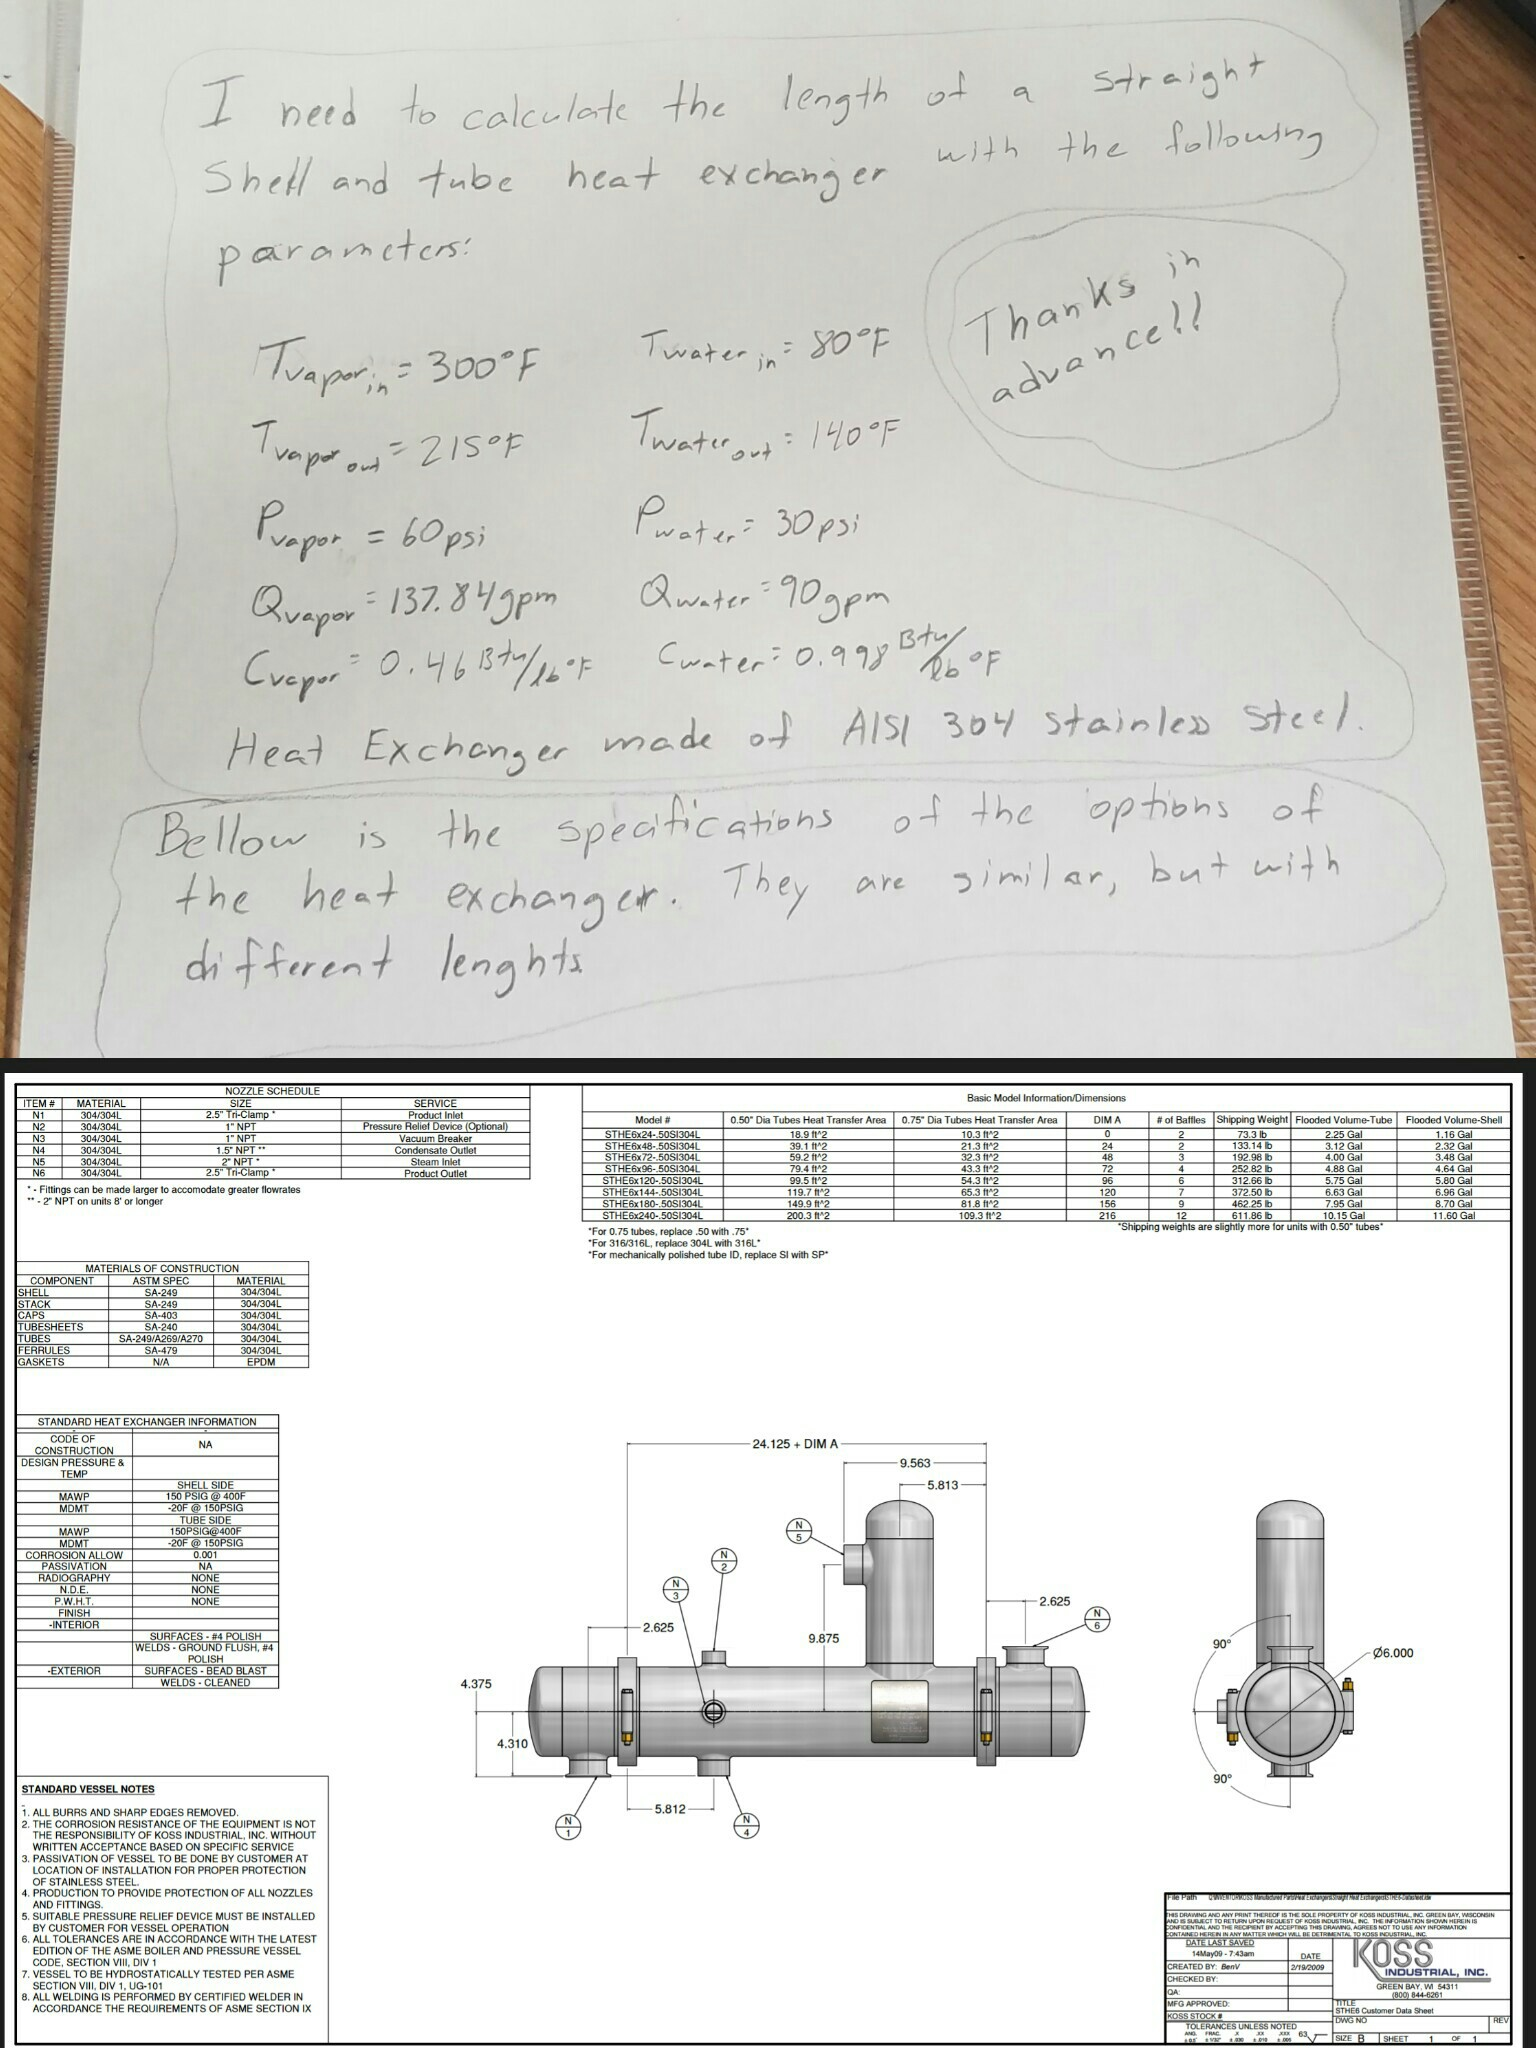 I need to calculate the length of a straight
Shell and tube heat exchanger with the following
parameters:
Tvapor in = 300°F
Twater in = 80°F
Thanks in
advance!!
Tvapor out = 215°F
Twater out = 140°F
Pvapor = 60psi
Pwater = 30psi
Qvapor = 137.84gpm
Qwater = 90gpm
Cvapor = 0.46 Btu/lb°F
Cwater = 0.998 Btu/lb °F
Heat Exchanger made of AISI 304 Stainless Steel.
Bellow is the specifications of the options of
the heat exchanger. They are similar, but with
different lenghts
NOZZLE SCHEDULE
ITEM # MATERIAL SIZE SERVICE
N1 304/304L 2.5" Tri-Clamp * Product Inlet
N2 304/304L 1" NPT Pressure Relief Device (Optional)
N3 304/304L 1" NPT Vacuum Breaker
N4 304/304L 1.5" NPT ** Condensate Outlet
N5 304/304L 2" NPT * Steam Inlet
N6 304/304L 2.5" Tri-Clamp * Product Outlet
* - Fittings can be made larger to accomodate greater flowrates
** - 2" NPT on units 8' or longer
Basic Model Information/Dimensions
Model # 0.50" Dia Tubes Heat Transfer Area 0.75" Dia Tubes Heat Transfer Area DIM A # of Baffles Shipping Weight Flooded Volume-Tube Flooded Volume-Shell
STHE6x24-.50SI304L 18.9 ft^2 10.3 ft^2 0 2 73.3 lb 2.25 Gal 1.16 Gal
STHE6x48-.50SI304L 39.1 ft^2 21.3 ft^2 24 2 133.14 lb 3.12 Gal 2.32 Gal
STHE6x72-.50SI304L 59.2 ft^2 32.3 ft^2 48 3 192.98 lb 4.00 Gal 3.48 Gal
STHE6x96-.50SI304L 79.4 ft^2 43.3 ft^2 72 4 252.82 lb 4.88 Gal 4.64 Gal
STHE6x120-.50SI304L 99.5 ft^2 54.3 ft^2 96 6 312.66 lb 5.75 Gal 5.80 Gal
STHE6x144-.50SI304L 119.7 ft^2 65.3 ft^2 120 7 372.50 lb 6.63 Gal 6.96 Gal
STHE6x180-.50SI304L 149.9 ft^2 81.8 ft^2 156 9 462.25 lb 7.95 Gal 8.70 Gal
STHE6x240-.50SI304L 200.3 ft^2 109.3 ft^2 216 12 611.86 lb 10.15 Gal 11.60 Gal
*For 0.75 tubes, replace .50 with .75*
*For 316/316L, replace 304L with 316L*
*For mechanically polished tube ID, replace SI with SP*
*Shipping weights are slightly more for units with 0.50" tubes*
MATERIALS OF CONSTRUCTION
COMPONENT ASTM SPEC MATERIAL
SHELL SA-249 304/304L
STACK SA-249 304/304L
CAPS SA-403 304/304L
TUBESHEETS SA-240 304/304L
TUBES SA-249/A269/A270 304/304L
FERRULES SA-479 304/304L
GASKETS N/A EPDM
STANDARD HEAT EXCHANGER INFORMATION
CODE OF CONSTRUCTION NA
DESIGN PRESSURE & TEMP
SHELL SIDE
MAWP 150 PSIG @ 400F
MDMT -20F @ 150PSIG
TUBE SIDE
MAWP 150PSIG@400F
MDMT -20F @ 150PSIG
CORROSION ALLOW 0.001
PASSIVATION NA
RADIOGRAPHY NONE
N.D.E. NONE
P.W.H.T. NONE
FINISH
-INTERIOR
SURFACES - #4 POLISH
WELDS - GROUND FLUSH, #4
POLISH
-EXTERIOR SURFACES - BEAD BLAST
WELDS - CLEANED
24.125 + DIM A
9.563
5.813
N 5
N 2
N 3
2.625
9.875
2.625
N 6
4.375
4.310
5.812
N 1
N 4
90°
Ø6.000
90°
STANDARD VESSEL NOTES
1. ALL BURRS AND SHARP EDGES REMOVED.
2. THE CORROSION RESISTANCE OF THE EQUIPMENT IS NOT
THE RESPONSIBILITY OF KOSS INDUSTRIAL, INC. WITHOUT
WRITTEN ACCEPTANCE BASED ON SPECIFIC SERVICE
3. PASSIVATION OF VESSEL TO BE DONE BY CUSTOMER AT
LOCATION OF INSTALLATION FOR PROPER PROTECTION
OF STAINLESS STEEL.
4. PRODUCTION TO PROVIDE PROTECTION OF ALL NOZZLES
AND FITTINGS.
5. SUITABLE PRESSURE RELIEF DEVICE MUST BE INSTALLED
BY CUSTOMER FOR VESSEL OPERATION
6. ALL TOLERANCES ARE IN ACCORDANCE WITH THE LATEST
EDITION OF THE ASME BOILER AND PRESSURE VESSEL
CODE, SECTION VIII, DIV 1
7. VESSEL TO BE HYDROSTATICALLY TESTED PER ASME
SECTION VIII, DIV 1, UG-101
8. ALL WELDING IS PERFORMED BY CERTIFIED WELDER IN
ACCORDANCE THE REQUIREMENTS OF ASME SECTION IX
File Path
THIS DRAWING AND ANY PRINT THEREOF IS THE SOLE PROPERTY OF KOSS INDUSTRIAL, INC. GREEN BAY, WISCONSIN
AND IS SUBJECT TO RETURN UPON REQUEST OF KOSS INDUSTRIAL, INC. THE INFORMATION SHOWN HEREIN IS
CONFIDENTIAL AND THE RECIPIENT BY ACCEPTING THIS DRAWING, AGREES NOT TO USE ANY INFORMATION
CONTAINED HEREIN IN ANY MATTER WHICH WILL BE DETRIMENTAL TO KOSS INDUSTRIAL, INC.
DATE LAST SAVED
14May09 - 7:43am DATE
CREATED BY: BenV 2/19/2009
CHECKED BY:
QA:
MFG APPROVED:
KOSS STOCK #
TOLERANCES UNLESS NOTED
ANG. FRAC. .X .XX .XXX 63
KOSS
INDUSTRIAL, INC.
GREEN BAY, WI 54311
(800) 844-6261
TITLE
STHE6 Customer Data Sheet
DWG NO REV
SIZE B SHEET 1 OF 1